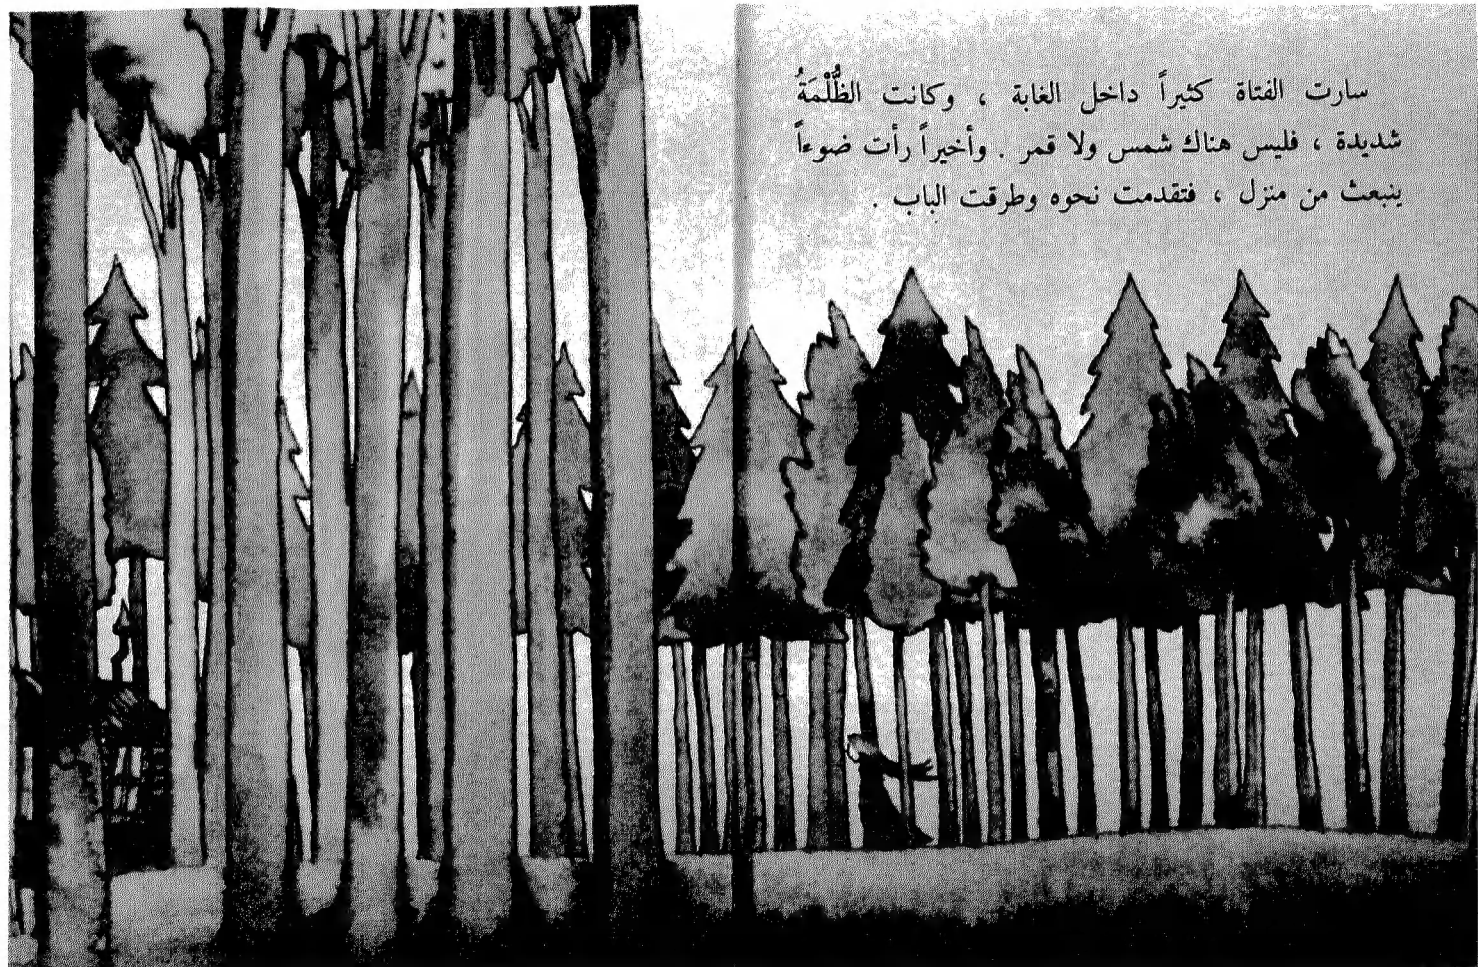 سارت الفتاة كثيراً داخل الغابة ، وكانت الظُّلْمَةُ
شديدة ، فليس هناك شمس ولا قمر . وأخيراً رأت ضوءاً
ينبعث من منزل ، فتقدمت نحوه وطرقت الباب .